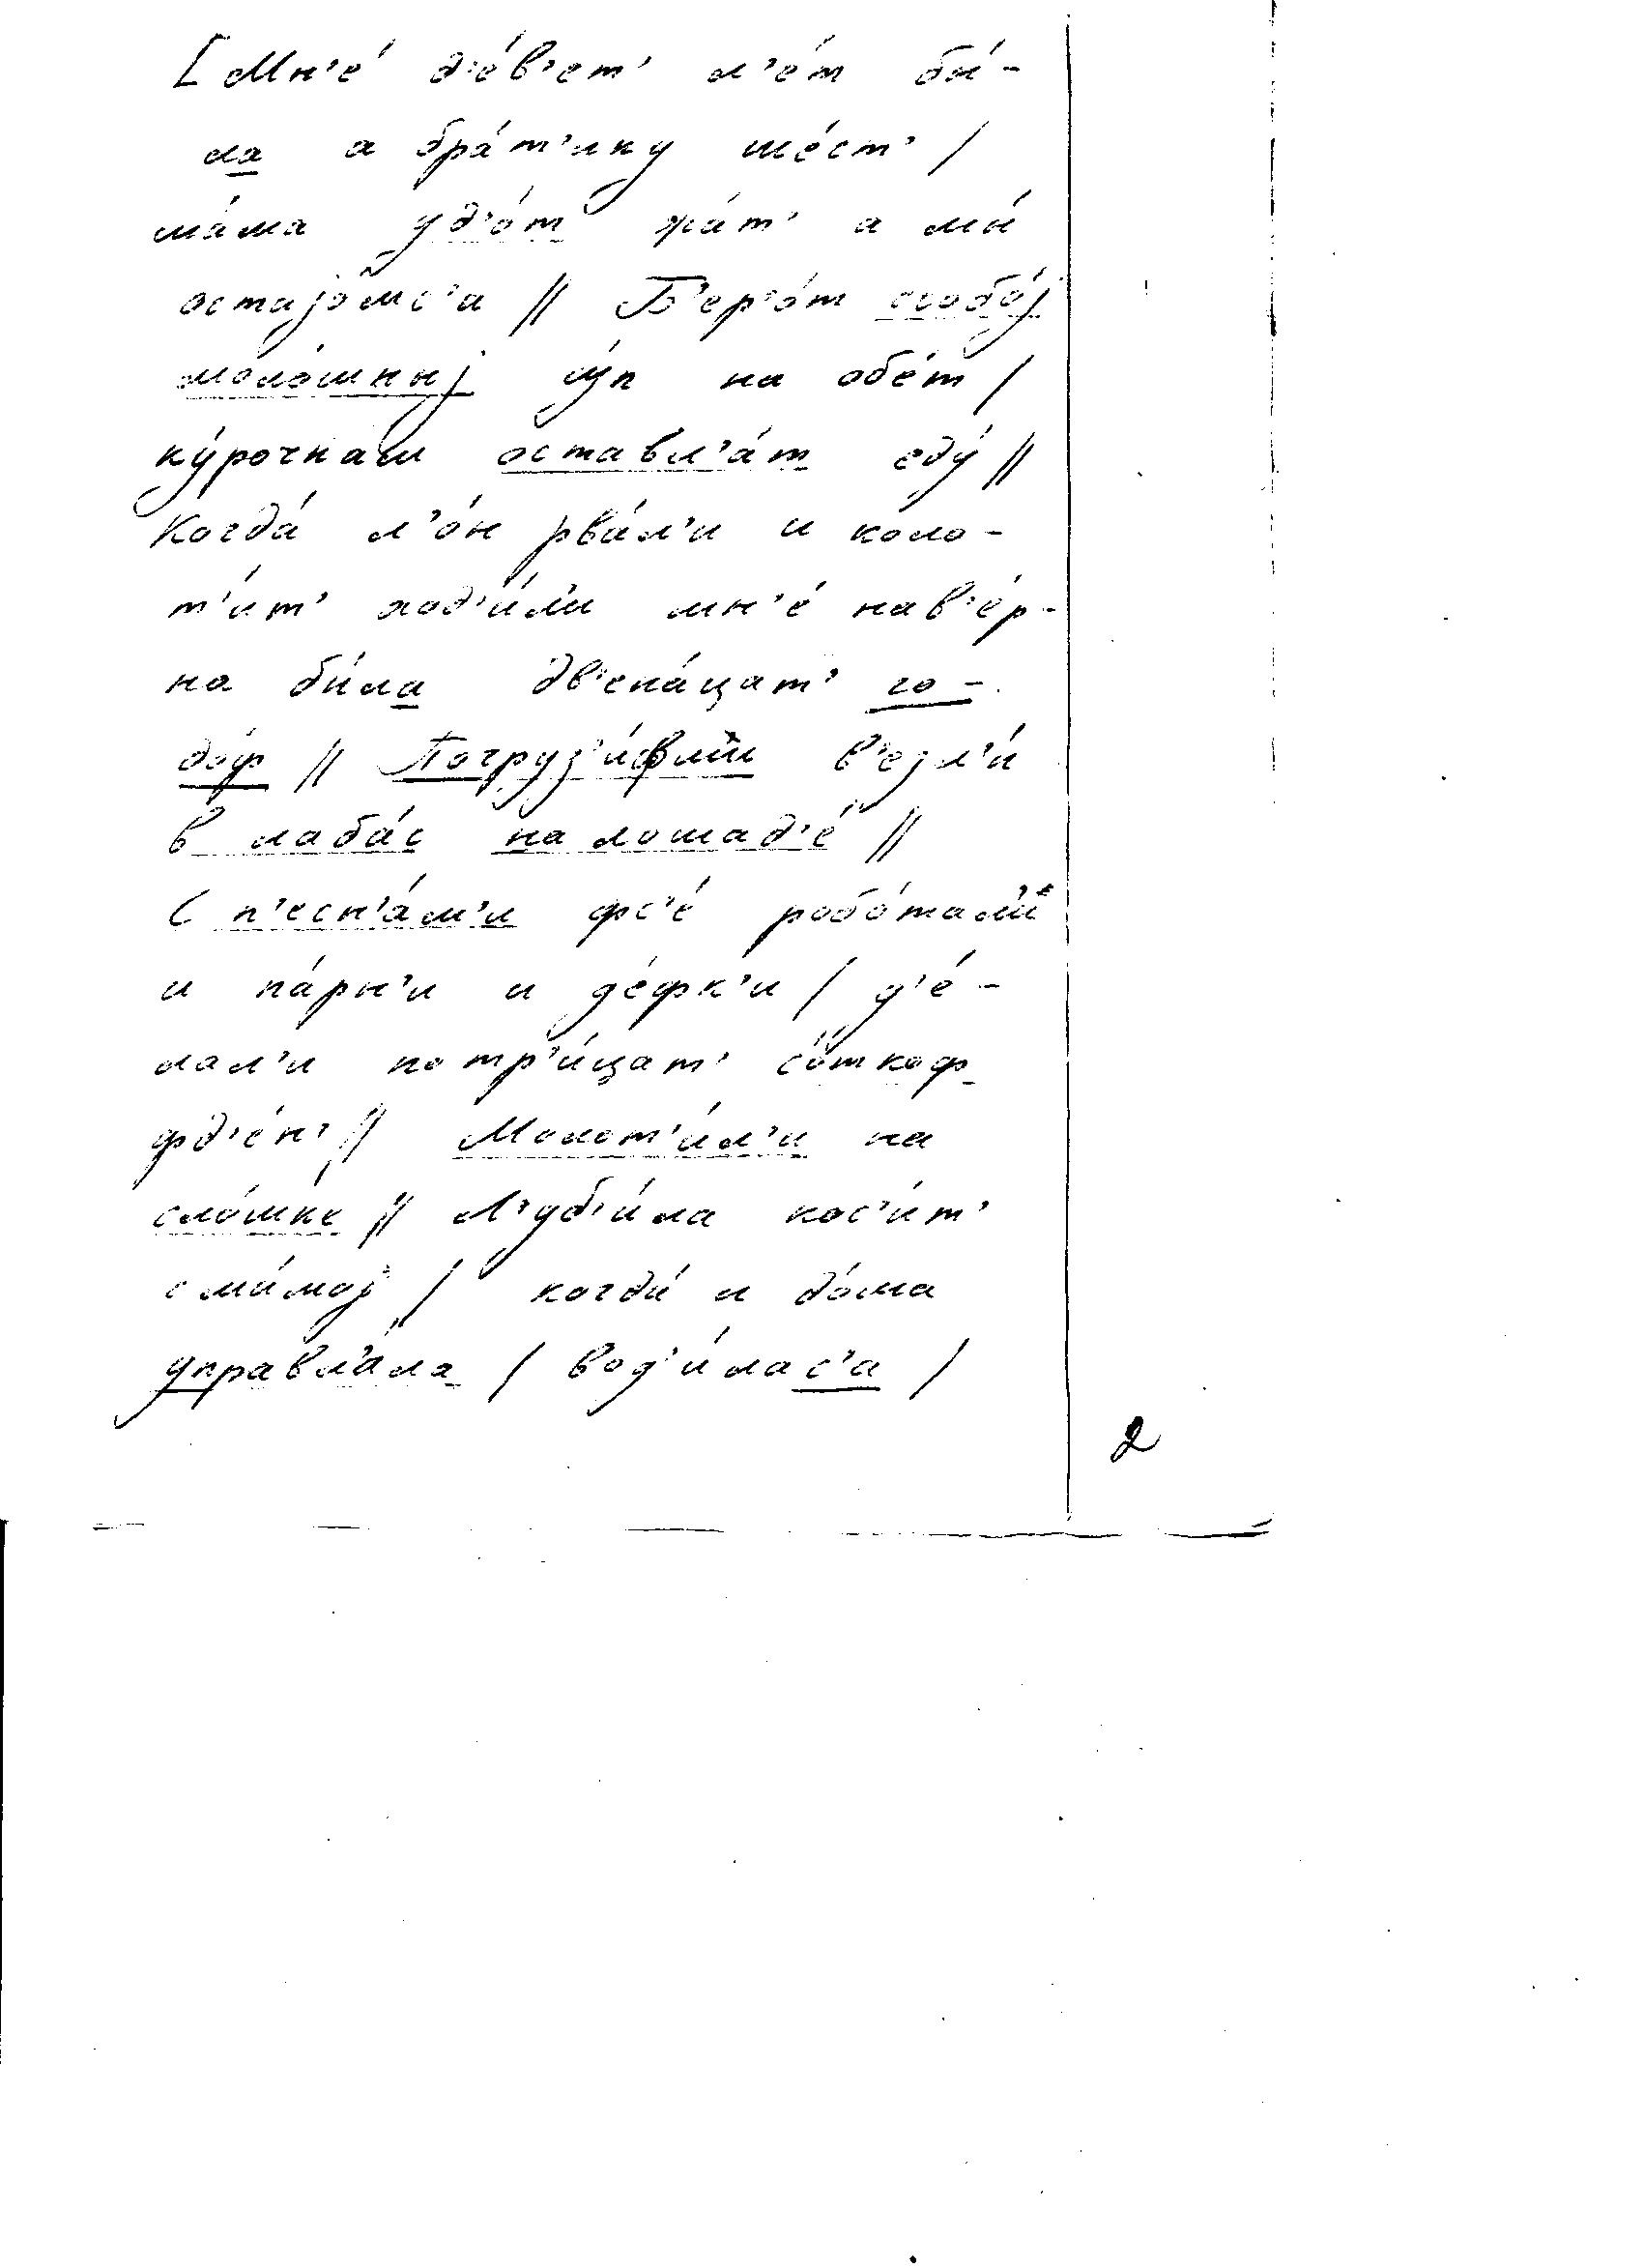 [Мн'е́ д'е́в'ет' л'е́т бы́-
ла а бра́т'ику ше́ст' /
ма́ма уд'о́т жа́т' а мы́
остаjо́мс'а // Б'ер'о́т ссобо́j
моло́шныj су́п на обе́т /
ку́рочкам оставл'а́т еду́ //
Когда́ л'о́н рва́л'и и коло-
т'и́т' ход'и́ли мн'е́ нав'е́р-
на бы́ла дв'ена́цат' го-
до́ф // Погруз'и́фшы в'езл'и́
в лаба́с на лошад'е́ //
С п'есн'а́м'и фс'е́ робо́тал'и
и па́рн'и и де́фк'и / д'е́-
лал'и по тр'и́цат' со́ткоф
фд'е́н' // Молот'и́л'и на
сло́шке // Л'уб'и́ла кос'и́т'
с ма́моj / когда́ и до́ма
управл'а́ла / вод'и́лас'а /
2